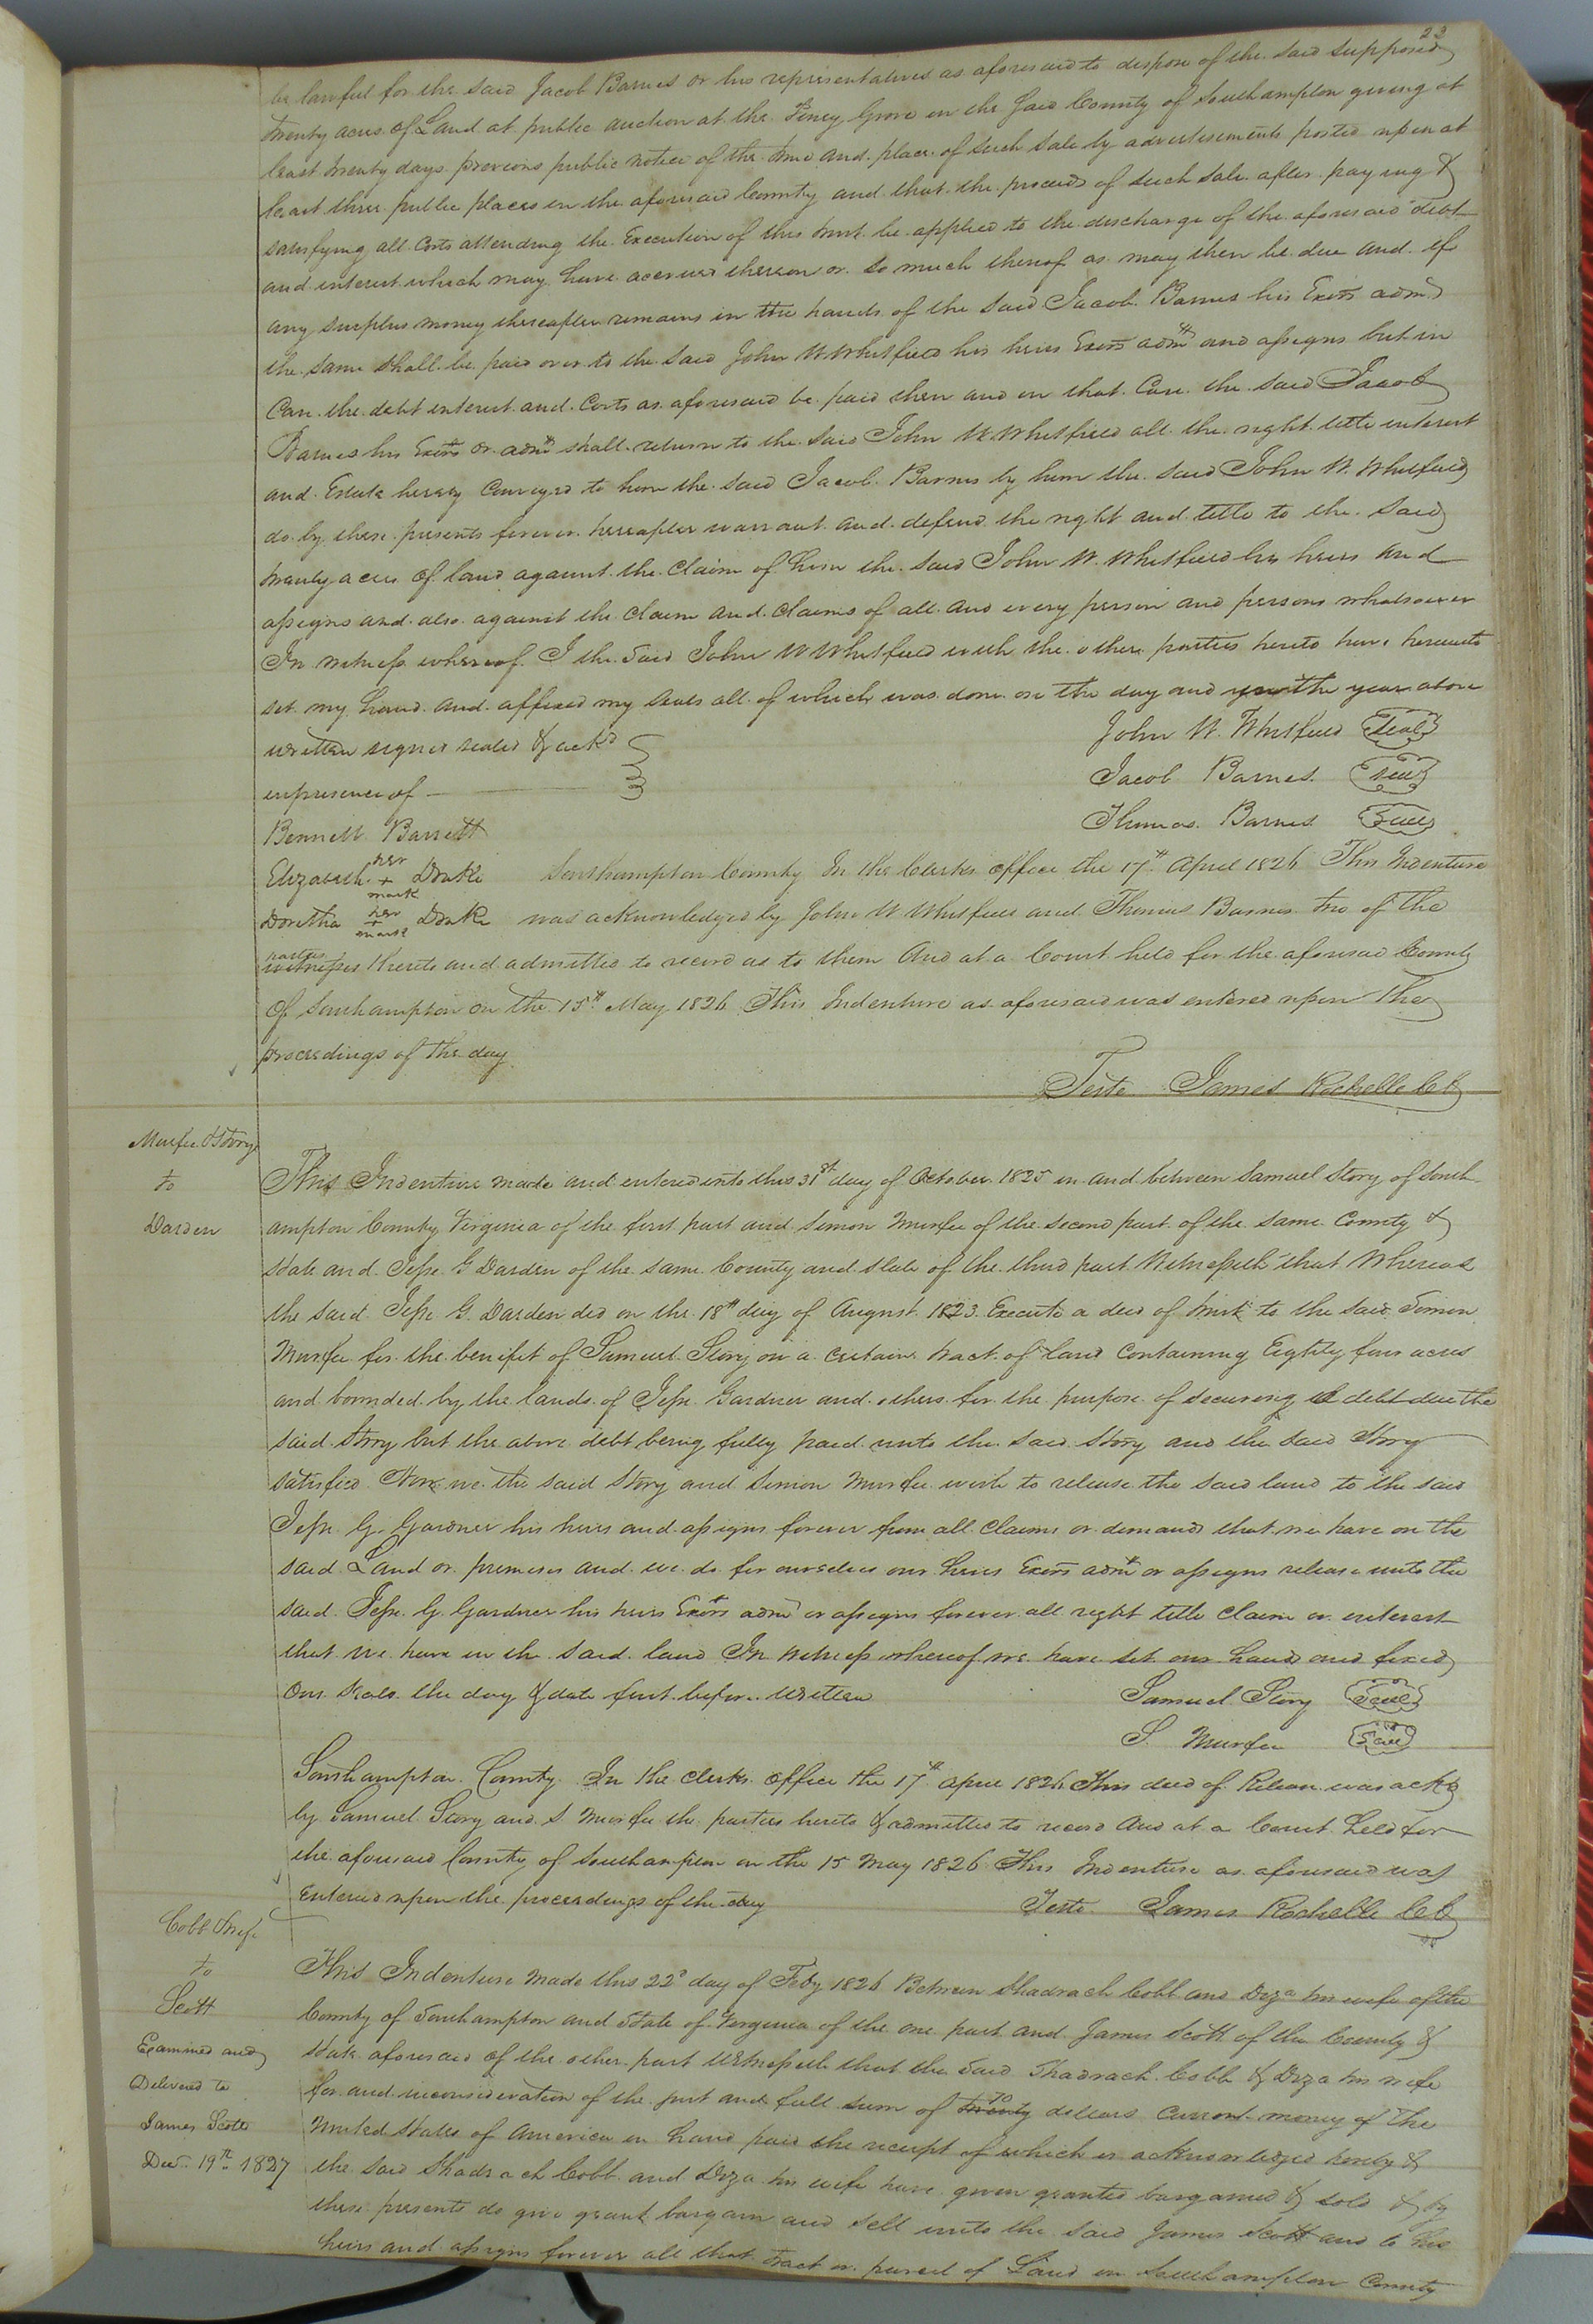 23
be lawful for the said Jacob Barnes or his representatives as aforesaid to dispose of the said supposed
twenty acres of Land at public auction at the Piney Grove in the Said County of Southampton giving at
least twenty days previous public notice of the time and place of such sale by advertisements posted up in at
least three public places in the aforesaid County and that the proceeds of such sale after paying &
satisfying all Costs attending the Execution of this trust be applied to the discharge of the aforesaid debt
and interest which may have accrued thereon or so much thereof as may then be due and if
any surplus money thereafter remains in the hands of the said Jacob Barnes his Exors admrs
the same shall be paid over to the said John W Whitfield his heirs Exors admrs and assigns but in
Case the debt interest and Costs as aforesaid be paid then and in that Case the said Jacob
Barnes his Exors or admrs shall return to the said John W Whitfield all the right title interest
and Estate hereby Conveyed to him the said Jacob Barnes by him the said John W. Whitfield
do by these presents forever hereafter warrant and defend the right and title to the said
twenty acres of land against the Claim of him the said John W. Whitfield his heirs and
assigns and also against the Claim and Claims of all and every person and persons whatsoever
In witness whereof I the said John W Whitfield with the other parties hereto have hereunto
set my hand and affixed my seals all of which was done on the day and the year above
written signed sealed & ackd
in presence of
John W. Whitfield Seal
Jacob Barnes Seal
Thomas Barnes Seal
Bennett Barrett
Elizabeth her + mark Drake
Doretha her + mark Drake
Southampton County In the Clerks office the 17th April 1826 This Indenture
was acknowledged by John W Whitfield and Thomas Barnes two of the
parties
witnesses thereto and admitted to record as to them And at a Court held for the aforesaid County
Of Southampton on the 15th May 1826 This Indenture as aforesaid was entered upon the
proceedings of the day
Teste James Rochelle CC
Murfee & Story
to
Darden
This Indenture made and entered into this 31st day of October 1825 in and between Samuel Story of South
ampton County Virginia of the first part and Simon Murfee of the second part of the same County &
State and Jesse G Darden of the same County and State of the third part Witnesseth that Whereas
the said Jesse G. Darden did on the 18th day of August 1823 Execute a deed of trust to the said Simon
Murfee for the benifit of Samuel Story on a Certain tract of land Containing Eighty four acres
and bounded by the lands of Jesse Gardner and others for the purpose of securing a debt due the
said Story but the above debt being fully paid unto the said Story and the said Story
satisfied Now we the said Story and Simon Murfee wish to release the said land to the said
Jesse G. Gardner his heirs and assigns forever from all Claims or demands that we have on the
said Land or premises and we do for ourselves our heirs Exors admrs or assigns release unto the
said Jesse G. Gardner his heirs Exors admrs or assigns forever all right title Claim or interest
that we have in the said land In witness whereof we have set our hands and fixed
Our Seals the day & date first before written
Samuel Story Seal
S. Murfee Seal
Southampton County In the Clerks Office the 17th April 1826 This deed of Release was ackd
by Samuel Story and S Murfee the parties hereto & admitted to record And at a Court held for
the aforesaid County of Southampton on the 15 May 1826 This Indenture as aforesaid was
Entered upon the proceedings of the day
Teste James Rochelle CC
Cobb & wife
to
Scott
Examined and
Delivered to
James Scott
Dec. 19th 1827
This Indenture made this 22d day of Feby 1826 Between Shadrach Cobb and Diza his wife of the
County of Southampton and State of Virginia of the one part and James Scott of the County &
State aforesaid of the other part Witnesseth that the said Shadrach Cobb & Diza his wife
for and in consideration of the just and full sum of twenty 70 dollars Current money of the
United States of America in hand paid the receipt of which is acknowledged hereby &
the said Shadrach Cobb and Diza his wife have given granted bargained & sold & by
these presents do give grant bargain and sell unto the said James Scott and to his
heirs and assigns forever all that tract or parcel of Land in Southampton County